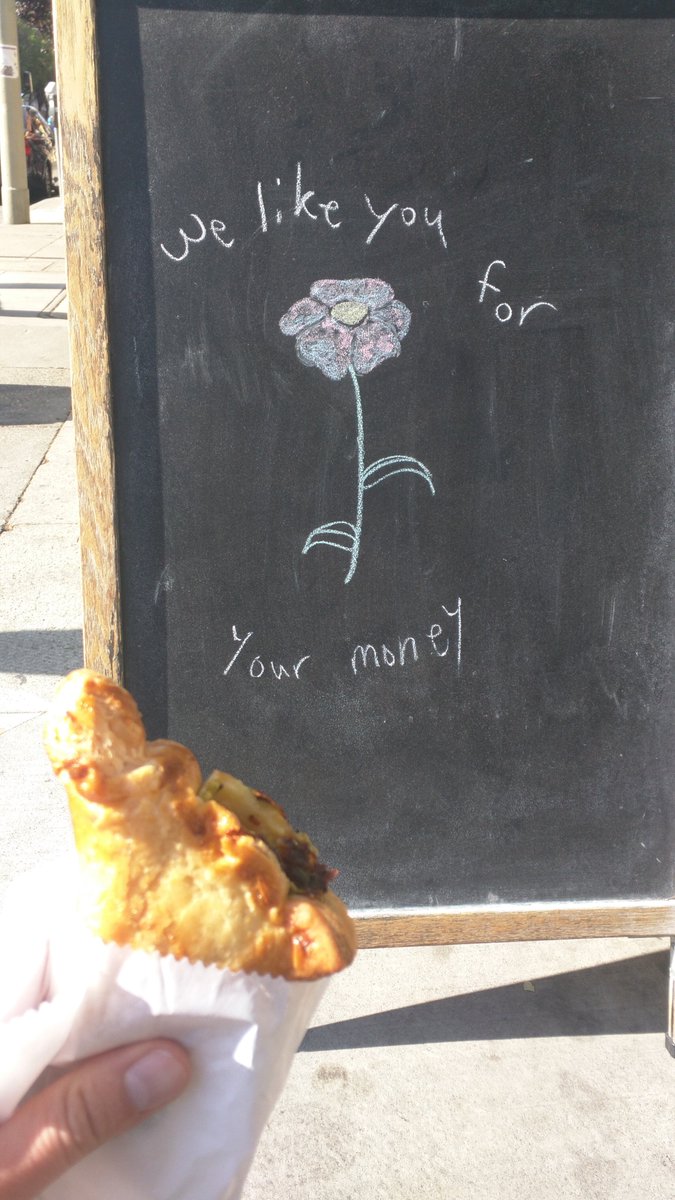 we like you
for
Your money